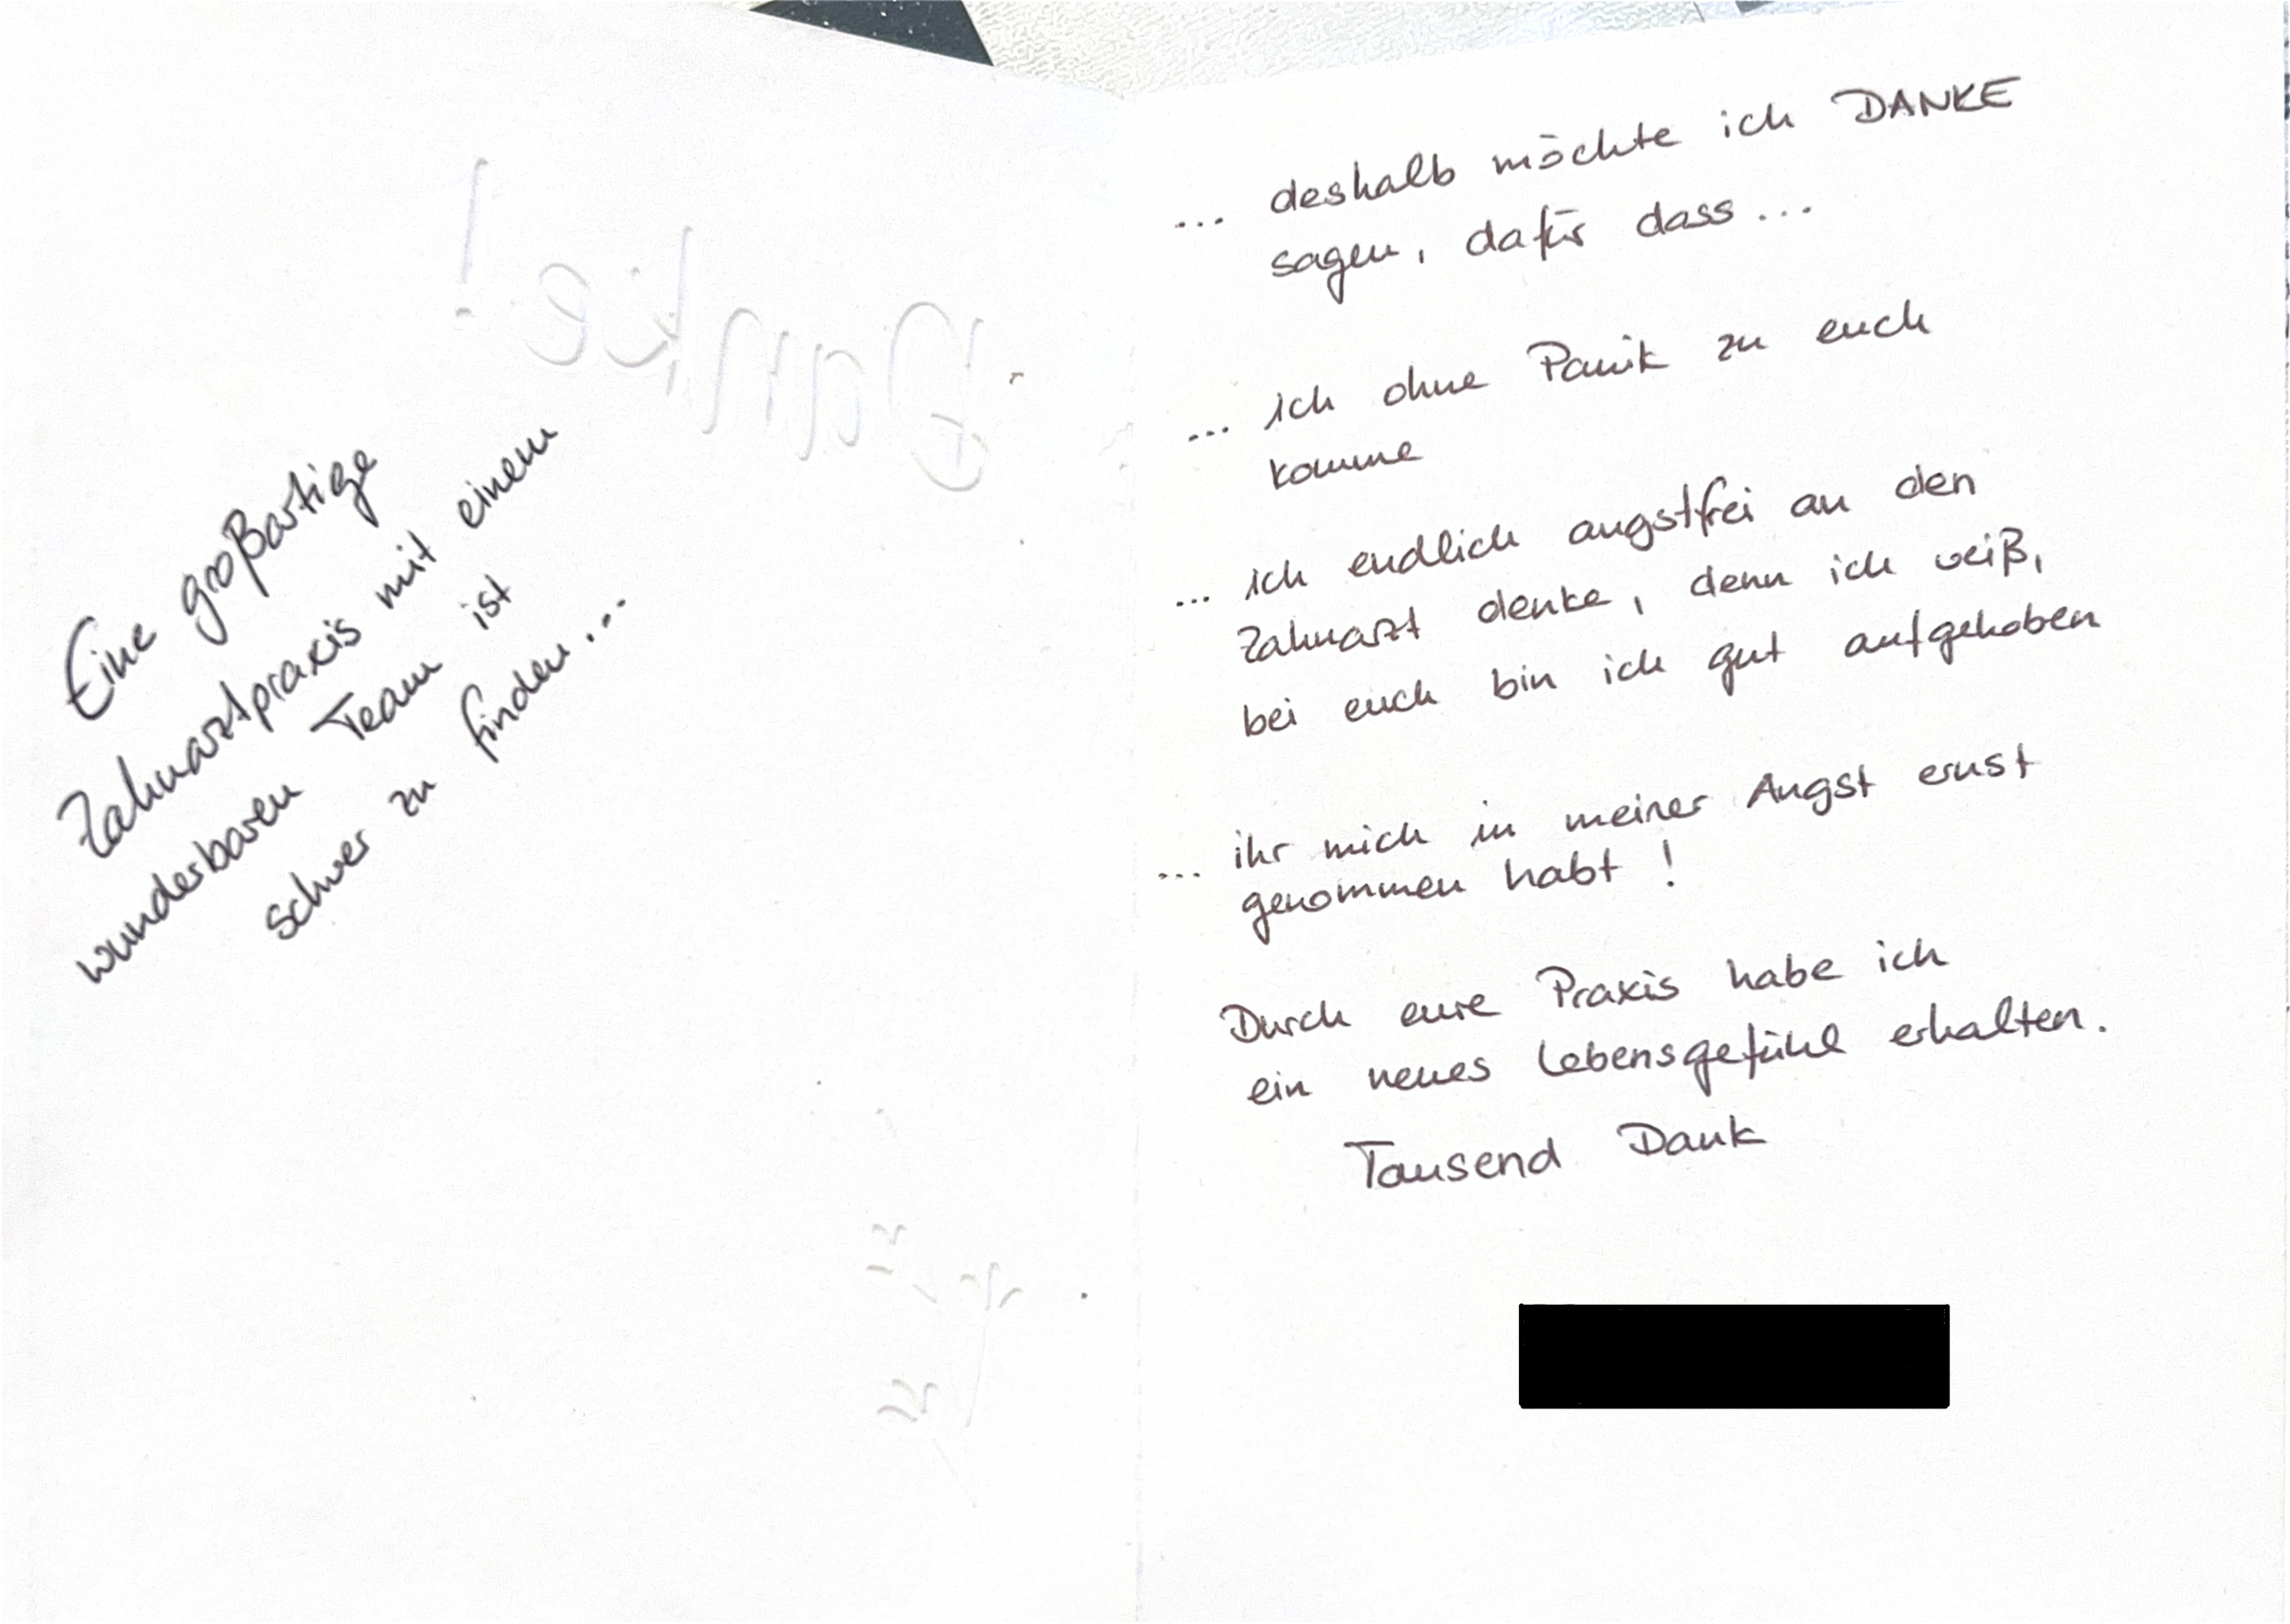 Eine großartige
Zahnarztpraxis mit einem
wunderbaren Team ist
schwer zu finden...
Danke!
... deshalb möchte ich DANKE
sagen, dafür dass...
... ich ohne Panik zu euch
komme
... ich endlich angstfrei an den
Zahnarzt denke, denn ich weiß,
bei euch bin ich gut aufgehoben
... ihr mich in meiner Angst ernst
genommen habt!
Durch eure Praxis habe ich
ein neues Lebensgefühl erhalten.
Tausend Dank